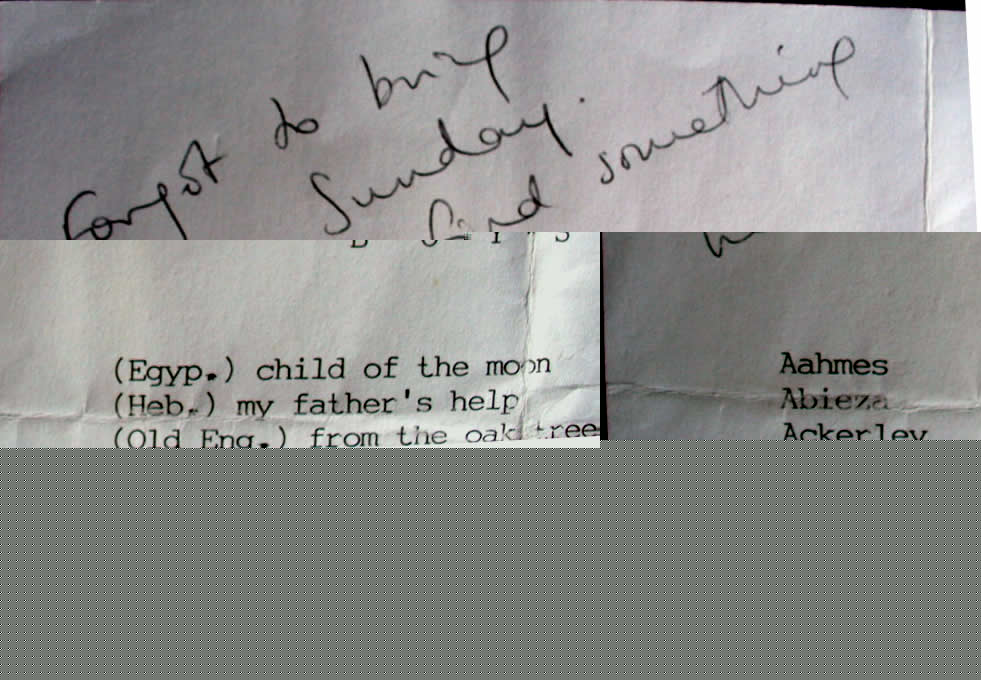 Forgot to bring
Sunday.
find something
(Egyp.) child of the moon
(Heb.) my father's help
(Old Eng.) from the oak tree
Aahmes
Abieza
Ackerley